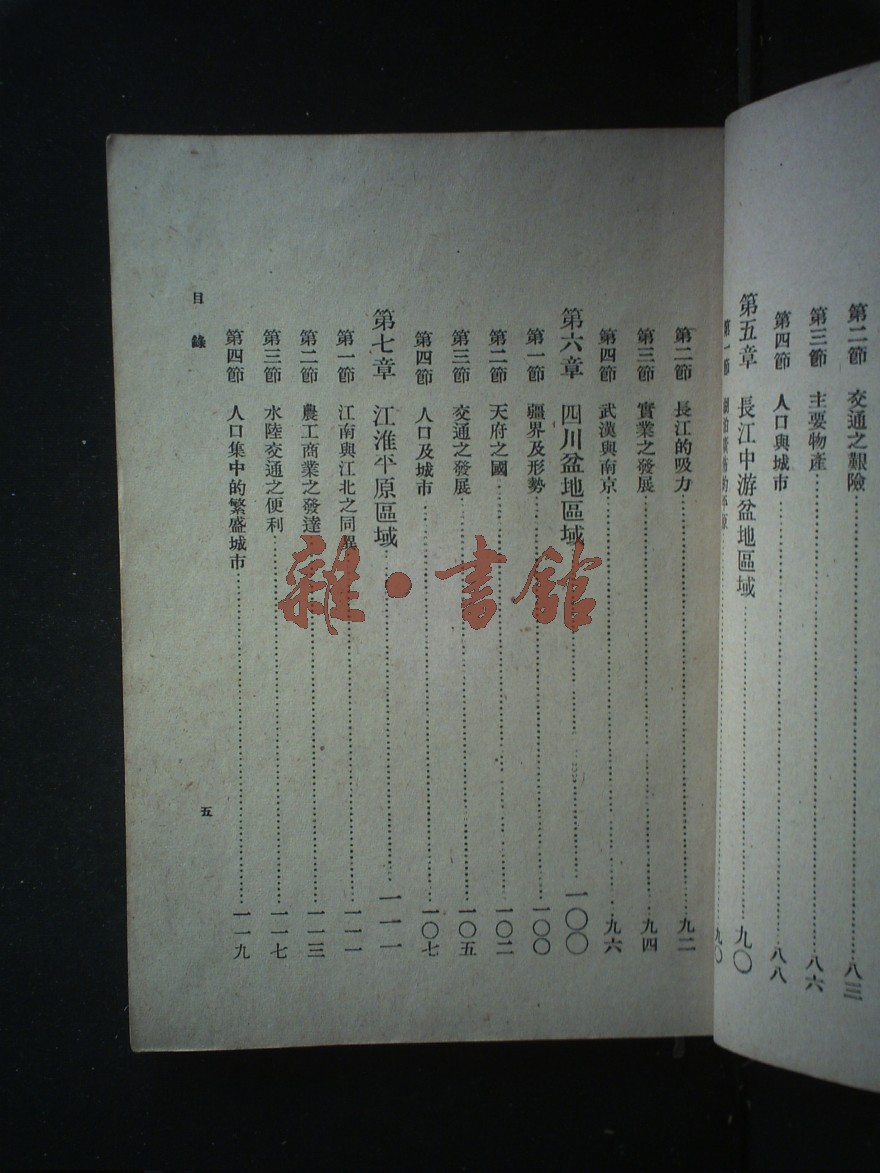 第二節 交通之艱險……八三
第三節 主要物產……八六
第四節 人口與城市……八八
第五章 長江中游盆地區域……九〇
第一節……九〇
第二節 長江的吸力……九二
第三節 實業之發展……九四
第四節 武漢與南京……九六
第六章 四川盆地區域……一〇〇
第一節 疆界及形勢……一〇〇
第二節 天府之國……一〇二
第三節 交通之發展……一〇五
第四節 人口及城市……一〇七
第七章 江淮平原區域……一一一
第一節 江南與江北之同異……一一一
第二節 農工商業之發達……一一三
第三節 水陸交通之便利……一一七
第四節 人口集中的繁盛城市……一一九
目錄
五
雜·書館